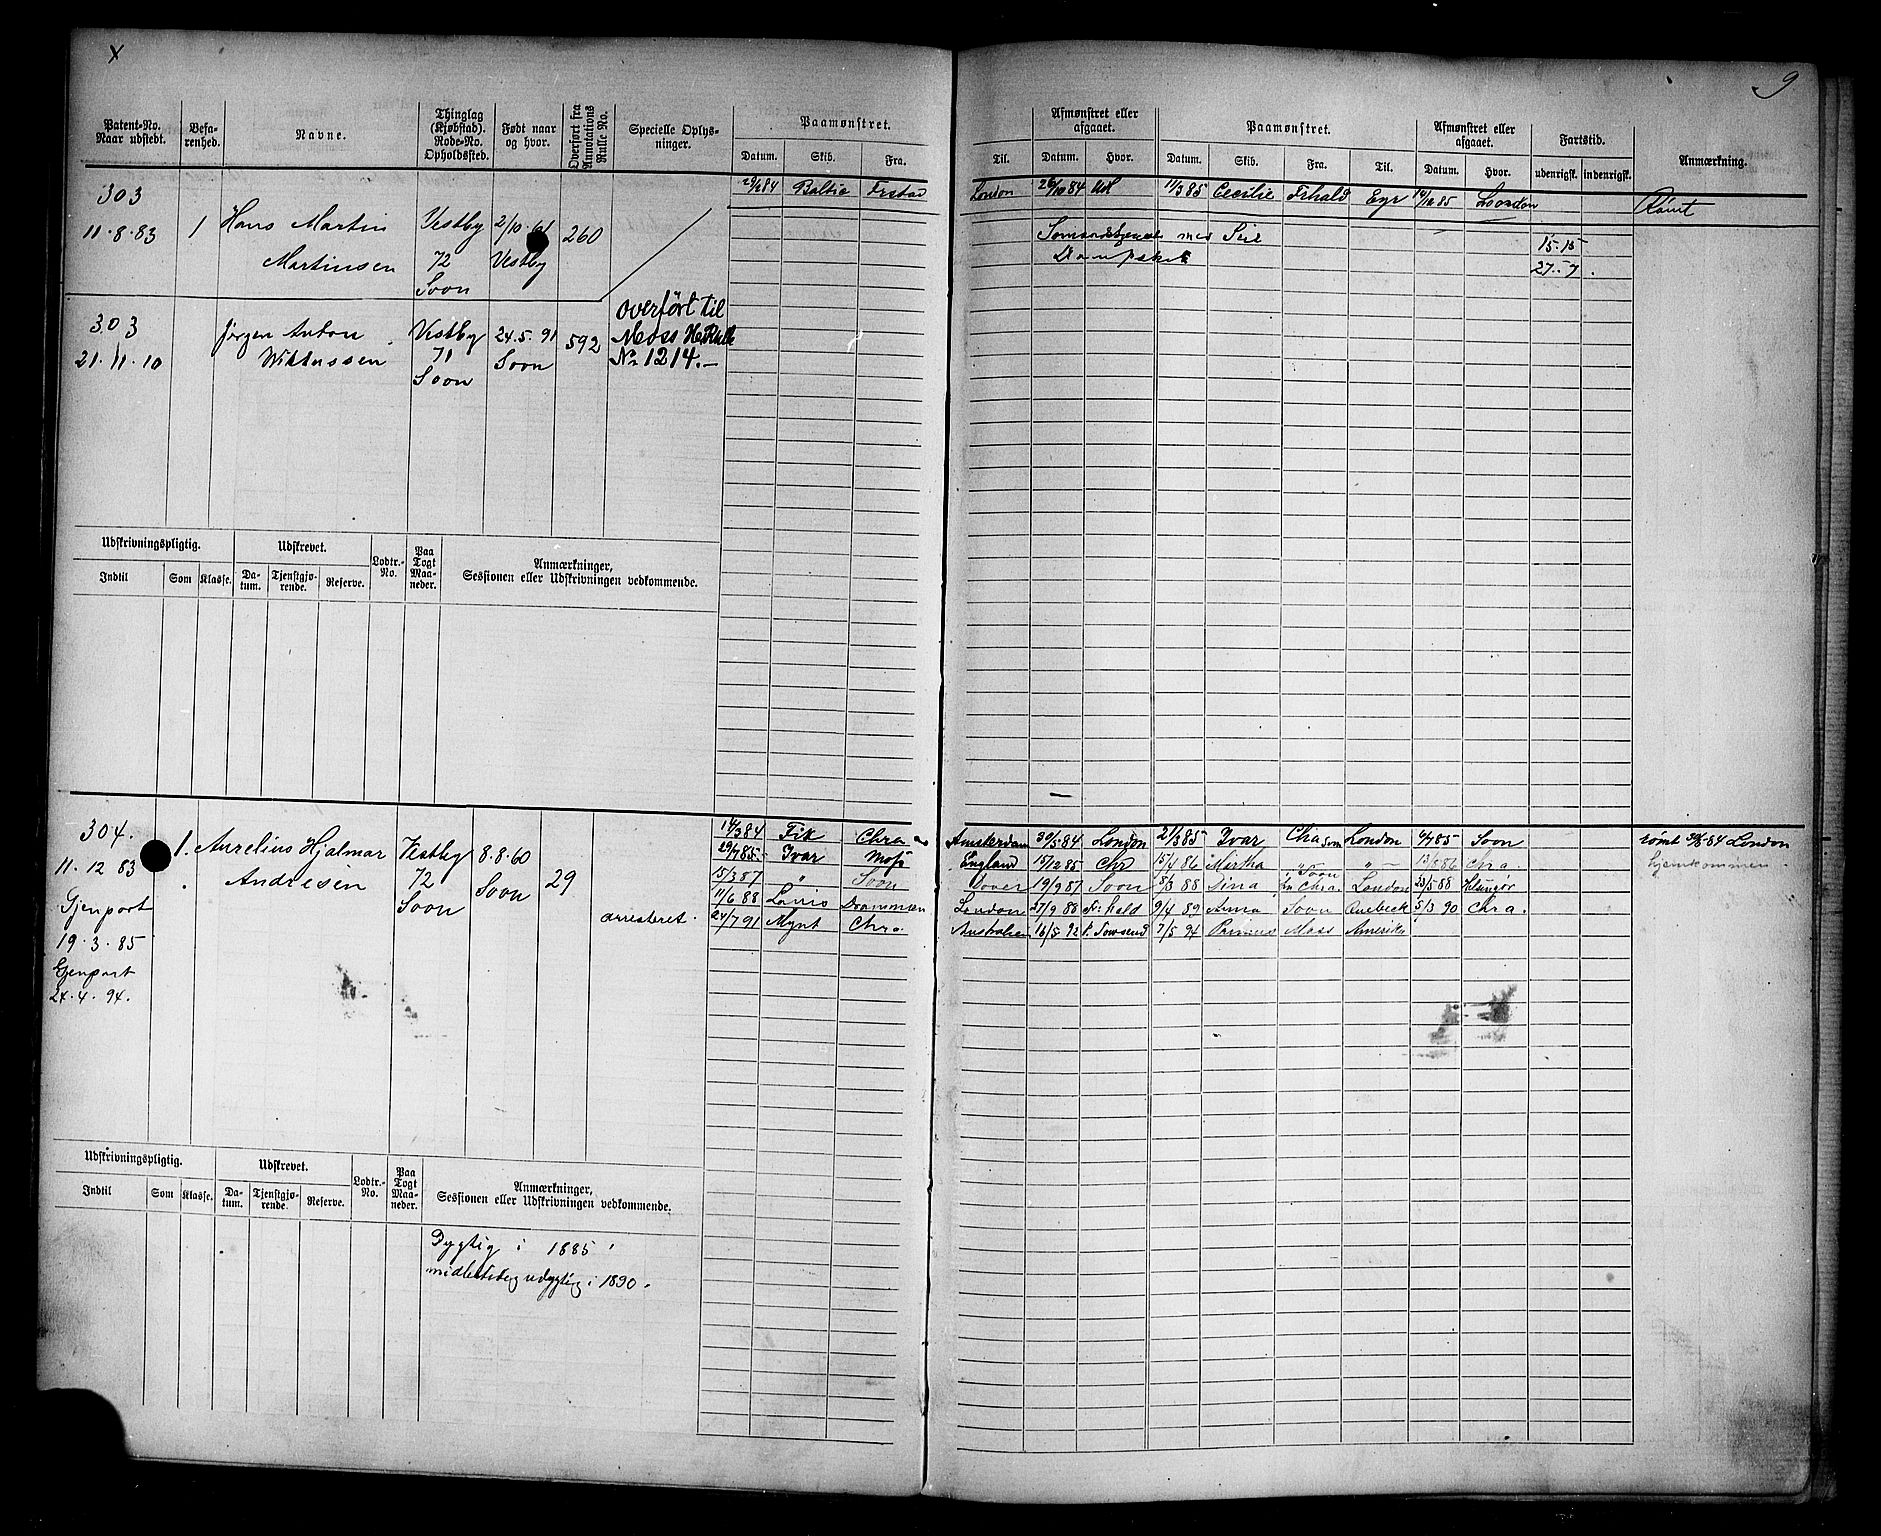 9
Patent-No. Naar udstedt.
Befarenhed.
Navne.
Thinglag (Kjøbstad). Rode-No. Opholdssted.
Født naar og hvor.
Overført fra Annotations Rulle No.
Specielle Oplysninger.
Paamønstret.
Datum. Skib. Fra.
Til.
Afmønstret eller afgaaet.
Datum. Hvor.
Paamønstret.
Datum. Skib. Fra. Til.
Afmønstret eller afgaaet.
Datum. Hvor.
Fartstid.
udenrigsk. indenrigsk.
Anmærkning.
303
11.8.83 1 Hans Martin Vestby 2/10.61 260
Martinsen 72 Vestby
Soon
Baltic Frstad London 26/10 84 11/3 85 Cecilie Frhald Egr London Rømt
med Seil 15.15
27.7.
303 Jørgen Anton Vestby 24.5.91 592 Overført til
21.11.10 71 Soon Moss
Soon No 1214.-
Udskrivningspligtig.
Indtil Som Klasse.
Udskrevet.
Datum. Tjenstgjørende. Reserve.
Lodtr.-No.
Paa Togt Maaneder.
Anmærkninger,
Sessionen eller Udskrivningen vedkommende.
304. 1. Aurelius Hjalmar Vestby 8.8.60 29
11.12 83 Andresen 72 Soon
Soon
Gjenpart
19.3.85
Gjenpart
24.4.94.
arresteret.
14/3 84 Fik Chra Amsterdam 30/5 84 London 21/3 85 Ivar Chra Soon London 4/7 85 Soon rømt 30/5 84 London
29/7 85 Ivar Moss England 15/12 85 Chr 15/4 86 Mertha " Soon " 86 Chra hjemkommen
15/3 87 " Soon Dover 19/9 87 Soon 8/3 88 Sina Chra. London 23/5 88
11/6 88 Lovis Drammen London 27/9 88 Fr: hald 9/4 89 Anna Soon Quebeck 5/3 90 Chra.
24/7 91 Mynt Chra Australien 16/5 92 P. Townsend 7/5 94 Moss Amerika
Udskrivningspligtig.
Indtil Som Klasse.
Udskrevet.
Datum. Tjenstgjørende. Reserve.
Lodtr.-No.
Paa Togt Maaneder.
Anmærkninger,
Sessionen eller Udskrivningen vedkommende.
Dygtig i 1885
midlertidig udygtig i 1890.